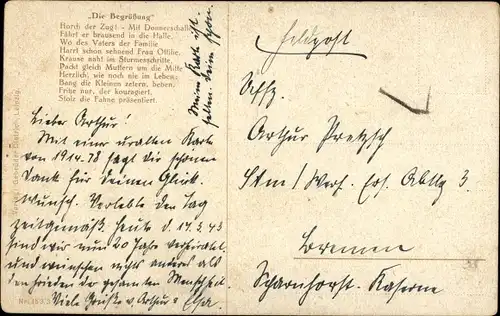 „Die Begrüßung"
Horch der Zug! - Mit Donnerschalle
Fährt er brausend in die Halle,
Wo des Vaters der Familie
Harrt schon sehnend Frau Ottilie.
Krause naht im Sturmesschritte,
Packt gleich Muttern um die Mitte
Herzlich, wie noch nie im Leben;
Bang die Kleinen zetern, beben.
Fritz nur, der kouragiert,
Stolz die Fahne präsentiert.
Meine Karte ist
selten. Beim
Lieber Arthur!
Mit einer uralten Karte
von 1914-18 sagt Dir schönen
Dank für Deinen Glück-
wunsch. Verlebte den Tag
zeitgemäß. Heute d. 17.3.43
sind wir nun 20 Jahre verheiratet
und wünschen nichts anderes als
den Frieden der gesamten Menschheit.
Viele Grüße v. Arthur u. Elsa.
Feldpost
Uffz.
Arthur Pretzsch
Stm / Werf. Ers. Abtlg 3.
Bremen
Scharnhorst-Kaserne